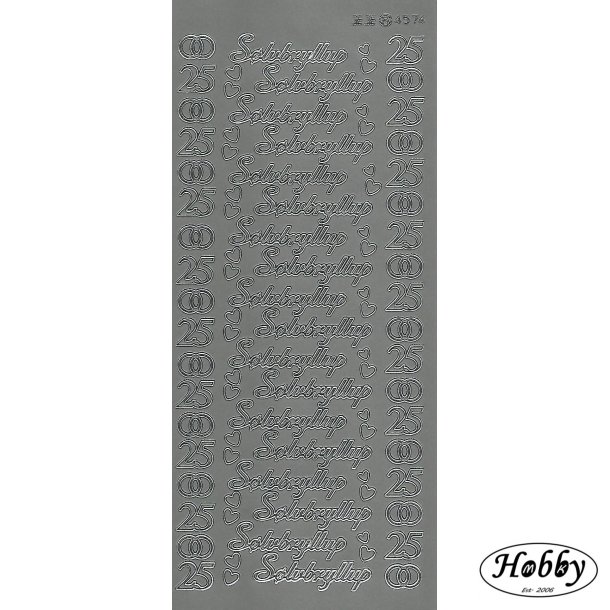 Sølvbryllup 25
25 Sølvbryllup
Sølvbryllup 25
25 Sølvbryllup
Sølvbryllup 25
25 Sølvbryllup
Sølvbryllup 25
25 Sølvbryllup
Sølvbryllup 25
25 Sølvbryllup
Sølvbryllup 25
25 Sølvbryllup
Sølvbryllup 25
25 Sølvbryllup
Sølvbryllup 25
25 Sølvbryllup
Sølvbryllup 25
25 Sølvbryllup
Hobby
Est- 2006